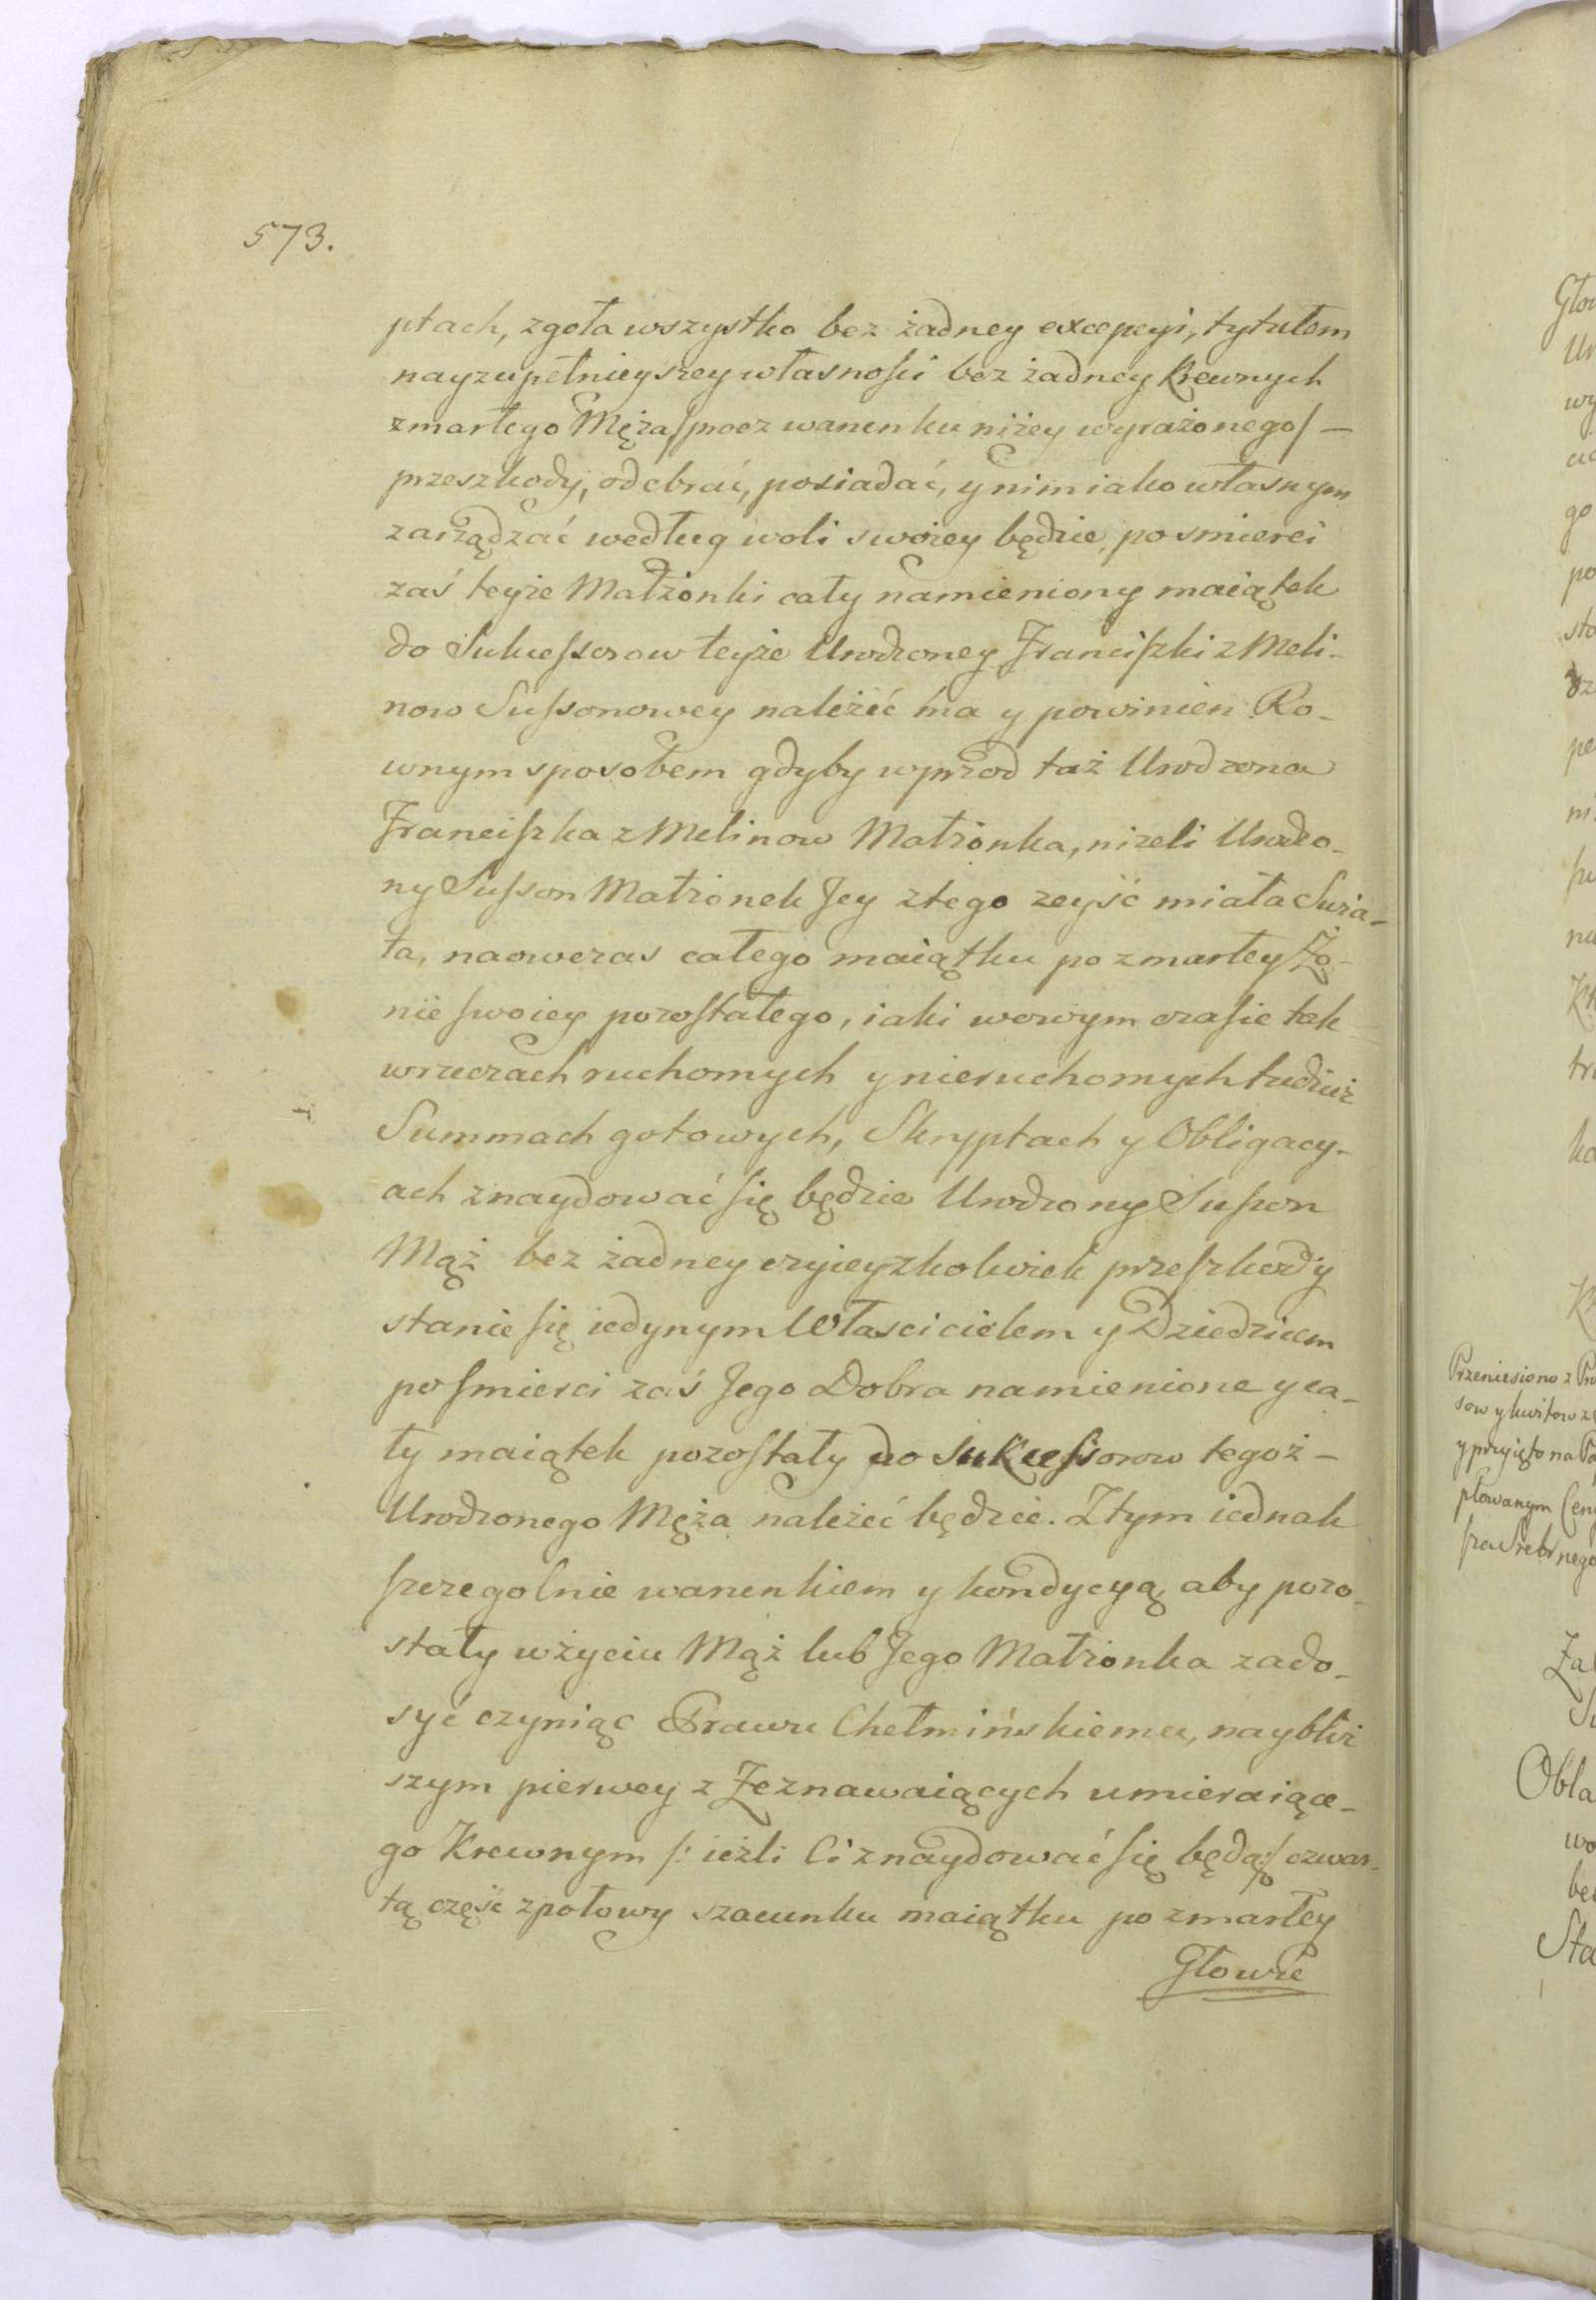 573.
ptach, zgoła wszystko bez żadney excepcyi, tytułem
nayzupełnieyszey własności bez żadney Krewnych
zmarłego Męża /procz warunku niżey wyrażonego/ —
przeszkody, odebrać, posiadać, y nim iako własnym
zarządzać według woli swoiey będzie, po smierci
zaś teyże Małżonki cały namieniony maiątek
do Sukcessorow teyże Urodzoney Franciszki z Meli-
now Sussonowey należeć ma y powinien Ro-
wnym sposobem gdyby wprzod taż Urodzona
Franciszka z Melinow Małżonka, niżeli Urodzo-
ny Susson Małżonek Jey z tego zeyść miała Swia-
ta, naowczas całego maiątku po zmarłey Żo-
nie swoiey pozostałego, iaki w owym czasie tak
w rzeczach ruchomych y nieruchomych tudzież
Summach gotowych, Skryptach y Obligacy-
ach znaydować się będzie Urodzony Susson
Mąż bez żadney czyieyzkolwiek przeszkody
stanie się iedynym Własci cielem y Dziedzicem
po smierci zaś Jego Dobra namienione y ca-
ły maiątek pozostały do Sukcessorow tegoż —
Urodzonego Męża należeć będzie. Z tym iednak
szczegolnie warunkiem y kondycyą, aby pozo-
stały w życiu Mąż lub Jego Małżonka zado-
syć czyniąc Prawu Chełmińskiemu, naybliż
szym pierwey z Zeznawaiących umieraiące-
go Krewnym /: ieżli Ci znaydować się będą :/ czwar-
tą część z połowy szacunku maiątku po zmarłey
Głowie
Przeniesiono z
sow y kwitow z
y przyięto na
płowanym Cen
sza Srebrnego